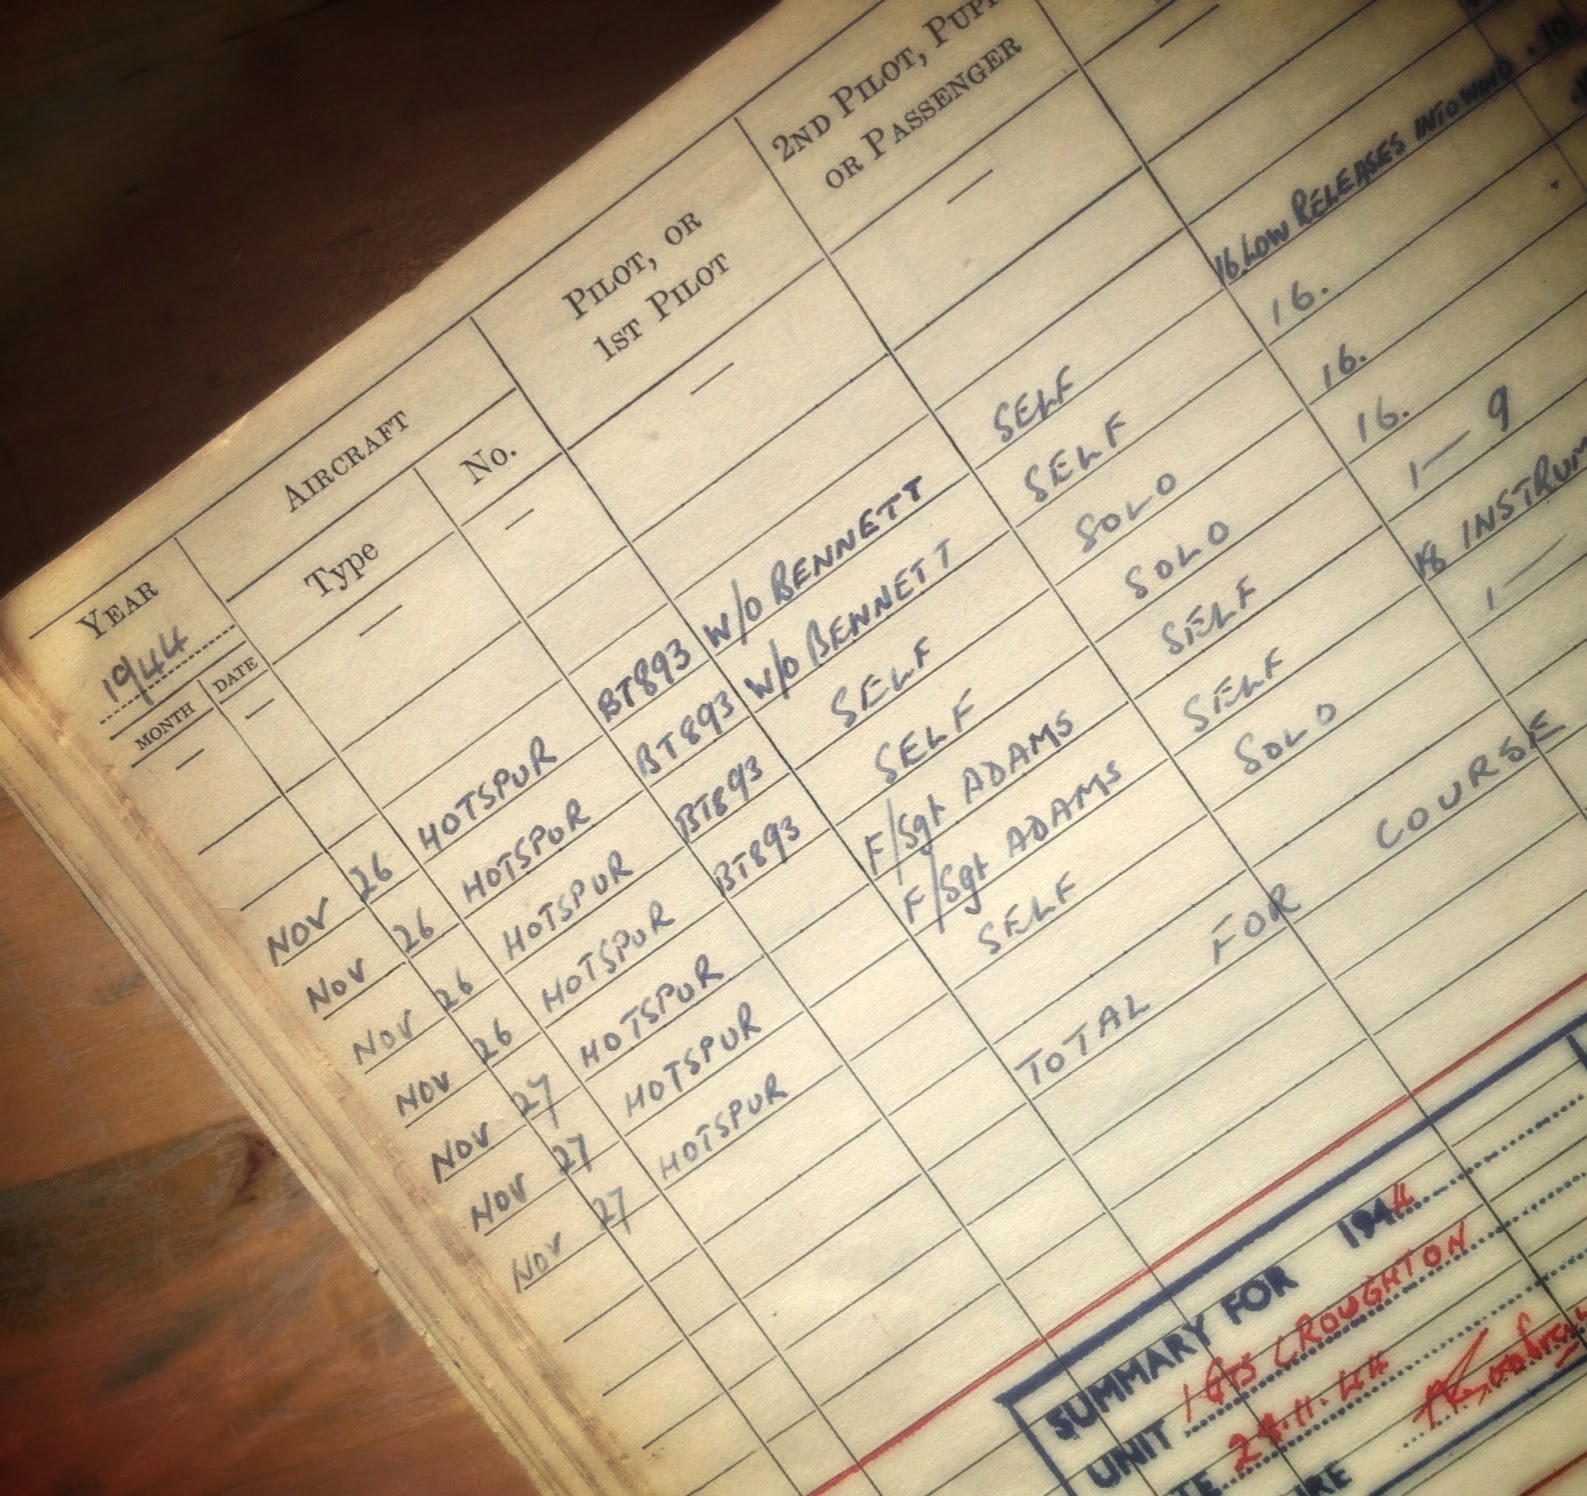 YEAR AIRCRAFT PILOT, OR 1ST PILOT 2ND PILOT, OR PASSENGER
1944
MONTH DATE Type No.
— — — — — — —
16 LOW RELEASES INTO WIND . 10
NOV 26 HOTSPUR BT893 W/O BENNETT SELF 16.
NOV 26 HOTSPUR BT893 W/O BENNETT SELF 16.
NOV 26 HOTSPUR BT893 SELF SOLO 16.
NOV 26 HOTSPUR BT893 SELF SOLO 1 — 9
NOV 27 HOTSPUR F/Sgt ADAMS SELF 18
NOV 27 HOTSPUR F/Sgt ADAMS SELF 1 —
NOV 27 HOTSPUR SELF SOLO
TOTAL FOR COURSE
SUMMARY FOR 1944
UNIT CROUGHTON
.11.44